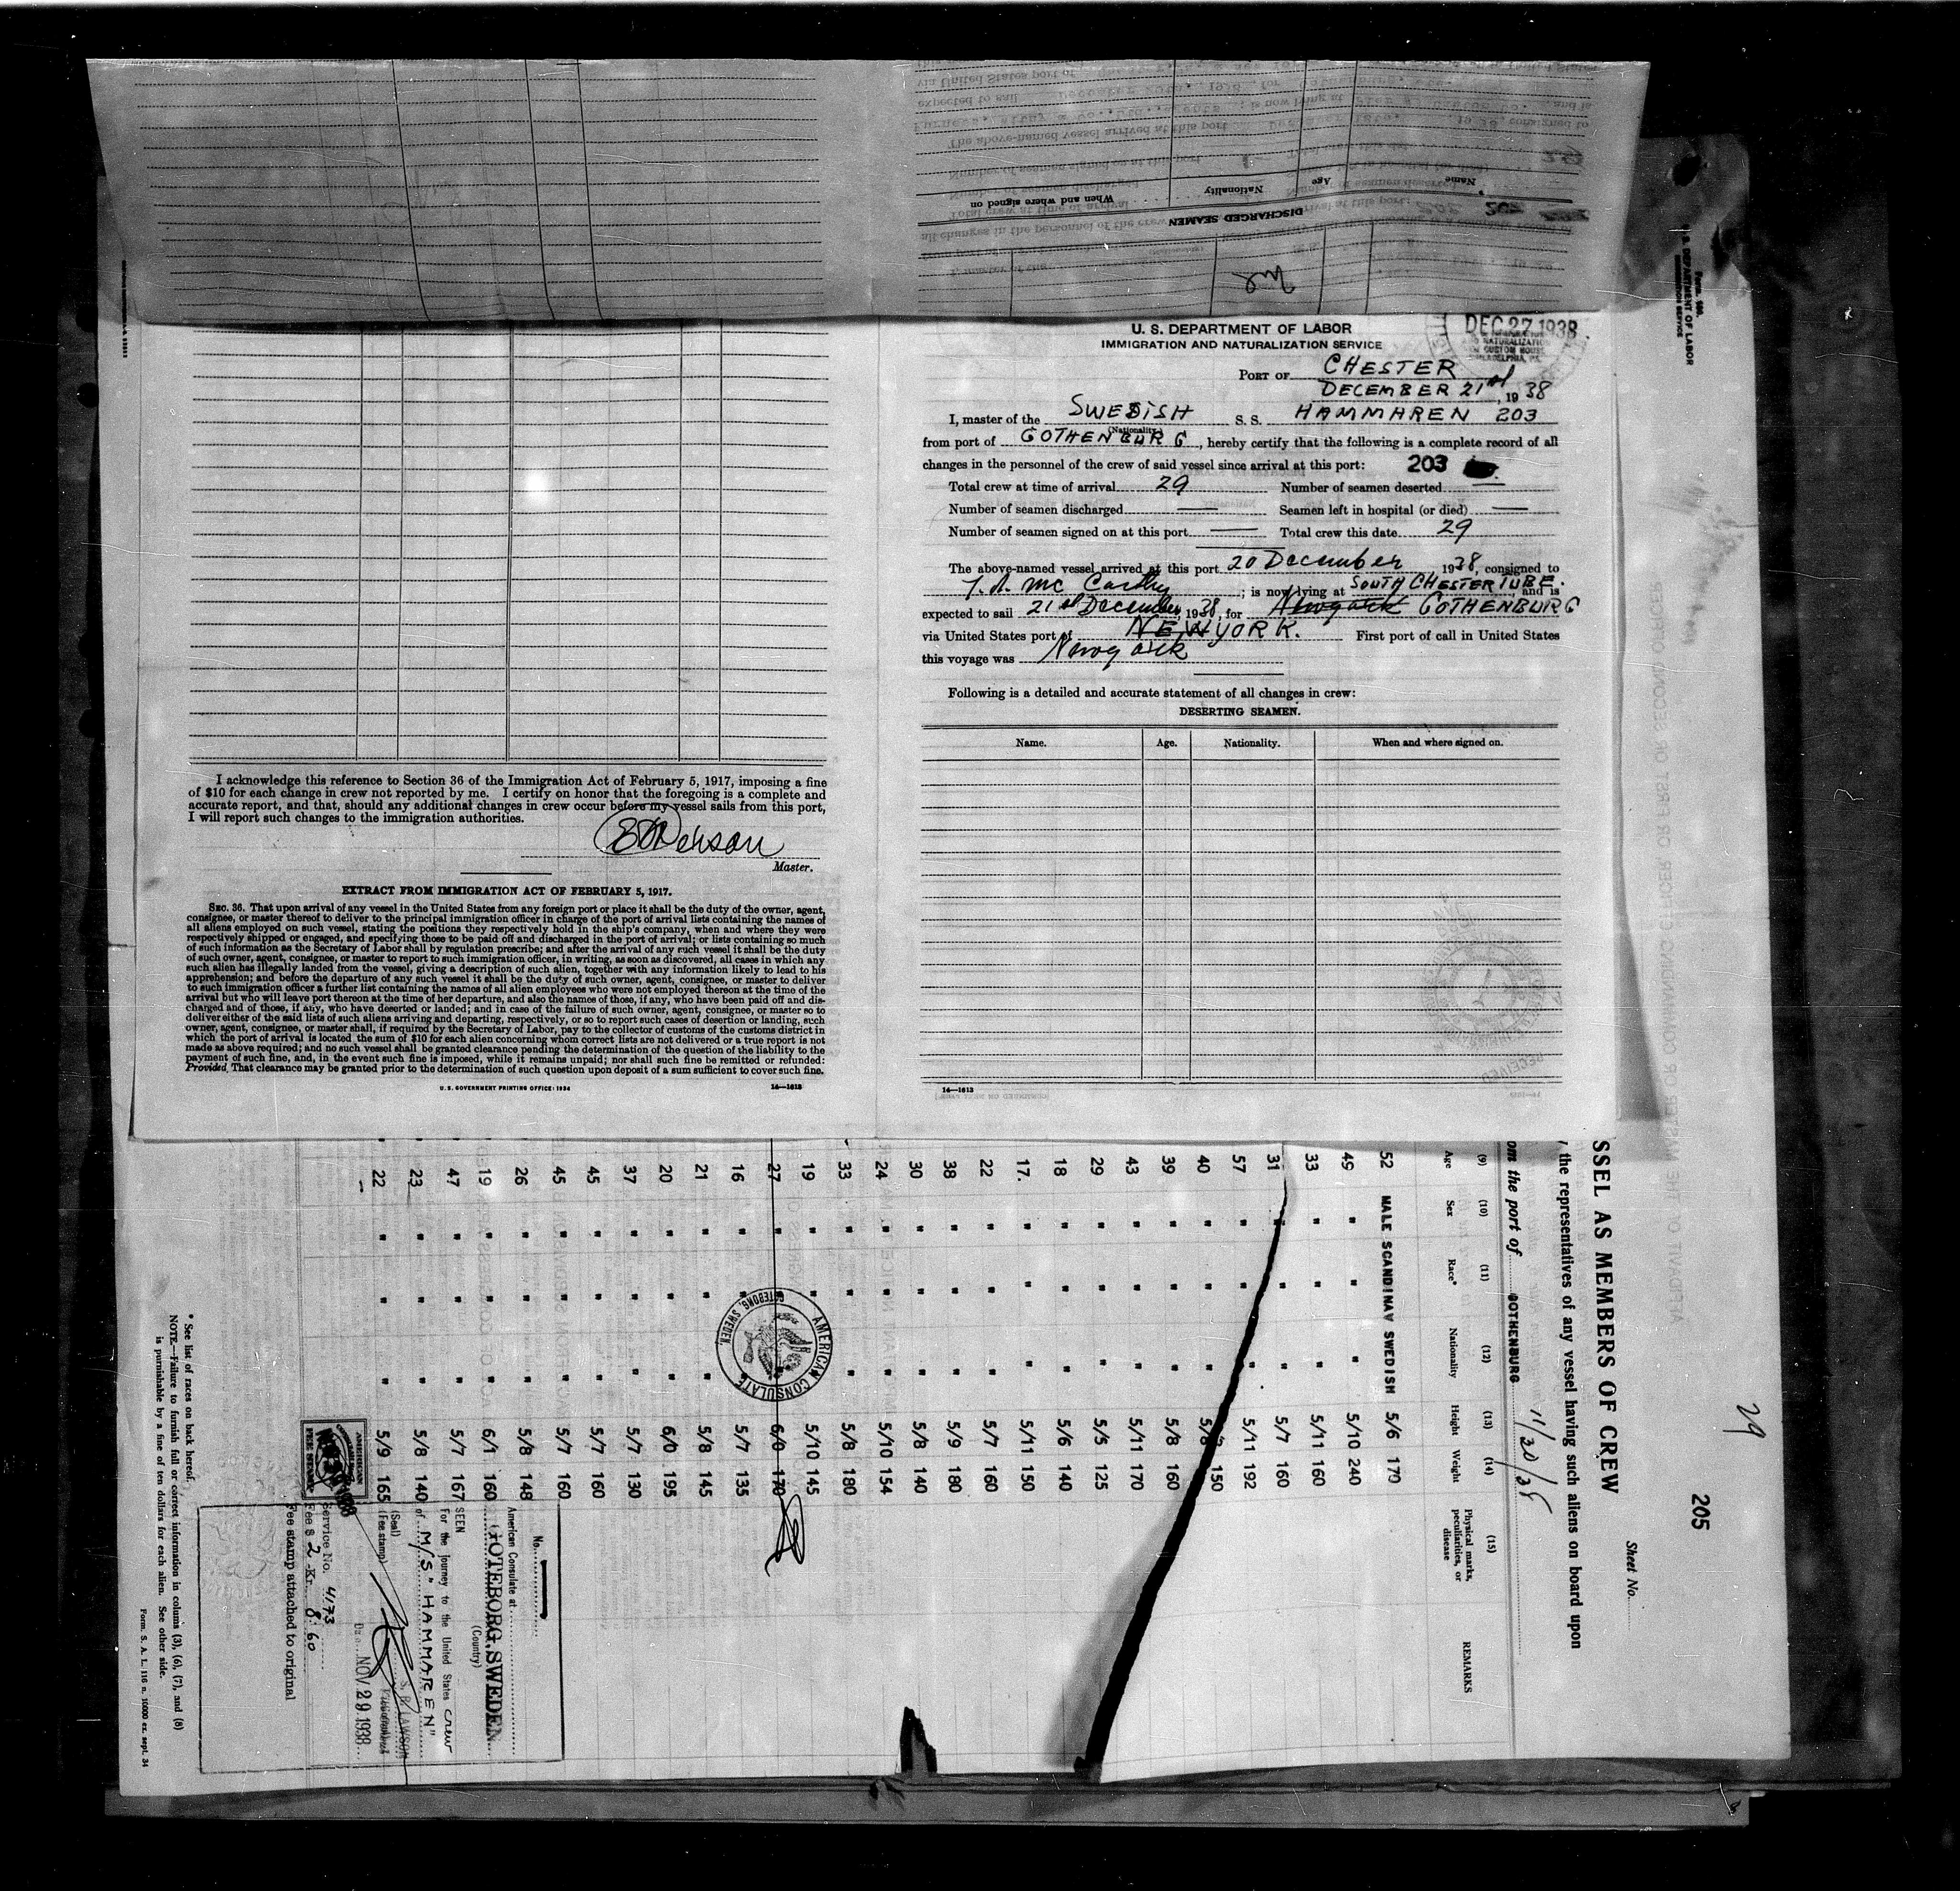 U. S. DEPARTMENT OF LABOR
IMMIGRATION AND NATURALIZATION SERVICE
DEC 27 1938
PORT OF CHESTER
DECEMBER 21st, 1938
I, master of the SWEDISH S. S. HAMMAREN 203
(Nationality)
from port of GOTHENBURG, hereby certify that the following is a complete record of all
changes in the personnel of the crew of said vessel since arrival at this port: 203
Total crew at time of arrival 29 Number of seamen deserted —
Number of seamen discharged — Seamen left in hospital (or died) —
Number of seamen signed on at this port — Total crew this date 29
The above-named vessel arrived at this port 20 December 1938, consigned to
Mc Carthy; is now lying at SOUTH CHESTER TUBE., and is
expected to sail 21st December, 1938, for GOTHENBURG
via United States port of NEW YORK. First port of call in United States
this voyage was
Following is a detailed and accurate statement of all changes in crew:
DESERTING SEAMEN.
Name. Age. Nationality. When and where signed on.
14—1613
I acknowledge this reference to Section 36 of the Immigration Act of February 5, 1917, imposing a fine
of $10 for each change in crew not reported by me. I certify on honor that the foregoing is a complete and
accurate report, and that, should any additional changes in crew occur before my vessel sails from this port,
I will report such changes to the immigration authorities.
Master.
EXTRACT FROM IMMIGRATION ACT OF FEBRUARY 5, 1917.
SEC. 36. That upon arrival of any vessel in the United States from any foreign port or place it shall be the duty of the owner, agent,
consignee, or master thereof to deliver to the principal immigration officer in charge of the port of arrival lists containing the names of
all aliens employed on such vessel, stating the positions they respectively hold in the ship's company, when and where they were
respectively shipped or engaged, and specifying those to be paid off and discharged in the port of arrival; or lists containing so much
of such information as the Secretary of Labor shall by regulation prescribe; and after the arrival of any such vessel it shall be the duty
of such owner, agent, consignee, or master to report to such immigration officer, in writing, as soon as discovered, all cases in which any
such alien has illegally landed from the vessel, giving a description of such alien, together with any information likely to lead to his
apprehension; and before the departure of any such vessel it shall be the duty of such owner, agent, consignee, or master to deliver
to such immigration officer a further list containing the names of all alien employees who were not employed thereon at the time of the
arrival but who will leave port thereon at the time of her departure, and also the names of those, if any, who have been paid off and dis-
charged and of those, if any, who have deserted or landed; and in case of the failure of such owner, agent, consignee, or master so to
deliver either of the said lists of such aliens arriving and departing, respectively, or so to report such cases of desertion or landing, such
owner, agent, consignee, or master shall, if required by the Secretary of Labor, pay to the collector of customs of the customs district in
which the port of arrival is located the sum of $10 for each alien concerning whom correct lists are not delivered or a true report is not
made as above required; and no such vessel shall be granted clearance pending the determination of the question of the liability to the
payment of such fine, and, in the event such fine is imposed, while it remains unpaid; nor shall such fine be remitted or refunded:
Provided, That clearance may be granted prior to the determination of such question upon deposit of a sum sufficient to cover such fine.
U.S. GOVERNMENT PRINTING OFFICE: 1934
14—1613
DISCHARGED SEAMEN
Name Age Nationality When and where signed on
29
205
Sheet No.
SSEL AS MEMBERS OF CREW
, the representatives of any vessel having such aliens on board upon
om the port of GOTHENBURG 11/30/38
(9) (10) (11) (12) (13) (14) (15)
Age Sex Race* Nationality Height Weight Physical marks, peculiarities, or disease REMARKS
52 MALE SCANDINAV SWEDISH 5/6 170
49 " " " 5/10 240
33 " " " 5/11 160
31 " " " 5/7 160
57 " " " 5/11 192
40 " " " 5/8 150
39 " " " 5/8 160
43 " " " 5/11 170
29 " " " 5/5 125
18 " " " 5/6 140
17. " " " 5/11 150
22 " " " 5/7 160
38 " " " 5/9 180
30 " " " 5/8 140
24 " " " 5/10 154
33 " " " 5/8 180
19 " " " 5/10 145
27 " " " 6/0 170
16 " " " 5/7 135
21 " " " 5/8 145
20 " " " 6/0 195
37 " " " 5/7 130
45 " " " 5/7 160
45 " " " 5/7 160
26 " " " 5/8 148
19 " " " 6/1 160
47 " " " 5/7 167
23 " " " 5/8 140
22 " " " 5/9 165
AMERICAN CONSULATE
GOTEBORG, SWEDEN.
No.
American Consulate at
GOTEBORG, SWEDEN
(Country)
SEEN
For the journey to the United States crew
of M/S "HAMMAREN"
(Seal)
(Fee stamp)
NOV 29 1938
Service No. 4173
Fee $ 2 - Kr. 8.60
Fee stamp attached to original
* See list of races on back hereof.
NOTE.—Failure to furnish full or correct information in column (3), (6), (7), and (8)
is punishable by a fine of ten dollars for each alien. See other side.
Form. S. A. L. 116 n. 10000 ex. sept. 34